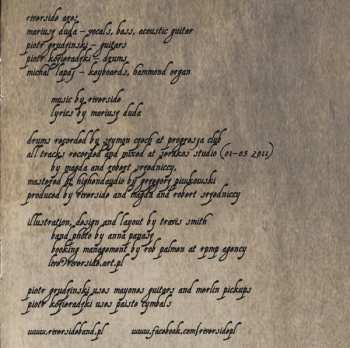 riverside are:
mariusz duda – vocals, bass, acoustic guitar
piotr grudziński – guitars
piotr kozieradzki – drums
michał łapaj – keyboards, hammond organ
music by riverside
lyrics by mariusz duda
drums recorded by szymon czech at progresja club
all tracks recorded and mixed at serakos studio (01-03 2011)
by magda and robert srzedniccy,
mastered at highendaudio by grzegorz piwkowski
produced by riverside and magda and robert srzedniccy
illustration, design and layout by travis smith
band photo by anna
booking management by rob palmen at rpmp agency
live@riverside.art.pl
piotr grudziński uses mayones guitars and merlin pickups
piotr kozieradzki uses paiste cymbals
www.riversideband.pl www.facebook.com/riversidepl